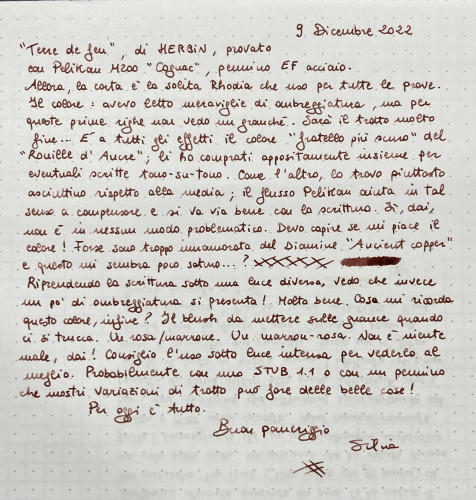 9 Dicembre 2022
"Terre de feu", di HERBIN, provato
con Pelikan M200 "Cognac", pennino EF acciaio.
Allora, la carta è la solita Rhodia che uso per tutte le prove.
Il colore: avevo letto meraviglie di ombreggiatura, ma per
queste prime righe non vedo un granché. Sarà il tratto molto
fine... E' a tutti gli effetti il colore "fratello più scuro" del
"Rouille d'Ancre"; li ho comprati appositamente insieme per
eventuali scritte tono-su-tono. Come l'altro, lo trovo piuttosto
asciuttino rispetto alla media; il flusso Pelikan aiuta in tal
senso a compensare e si va via bene con la scrittura. Sì, dai,
non è in nessun modo problematico. Devo capire se mi piace il
colore! Forse sono troppo innamorata del Diamine "Ancient copper"
e questo mi sembra poco saturo...?
Riprendendo la scrittura sotto una luce diversa, vedo che invece
un po' di ombreggiatura si presenta! Molto bene. Cosa mi ricorda
questo colore, infine? Il blush da mettere sulle guance quando
ci si trucca. Un rosa/marrone. Un marron-rosa. Non è niente
male, dai! Consiglio l'uso sotto luce intensa per vederlo al
meglio. Probabilmente con uno STUB 1.1 o con un pennino
che mostri variazioni di tratto può fare delle belle cose!
Per oggi è tutto.
Buon pomeriggio
Silvia